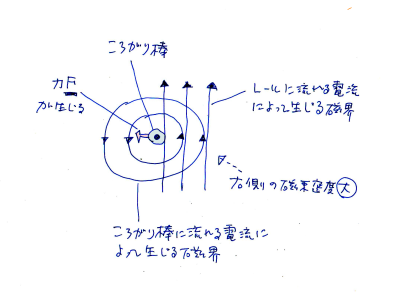 ころがり棒
力F
が生じる
レールに流れる電流
によって生じる磁界
右側の磁束密度大
ころがり棒に流れる電流に
よって生じる磁界